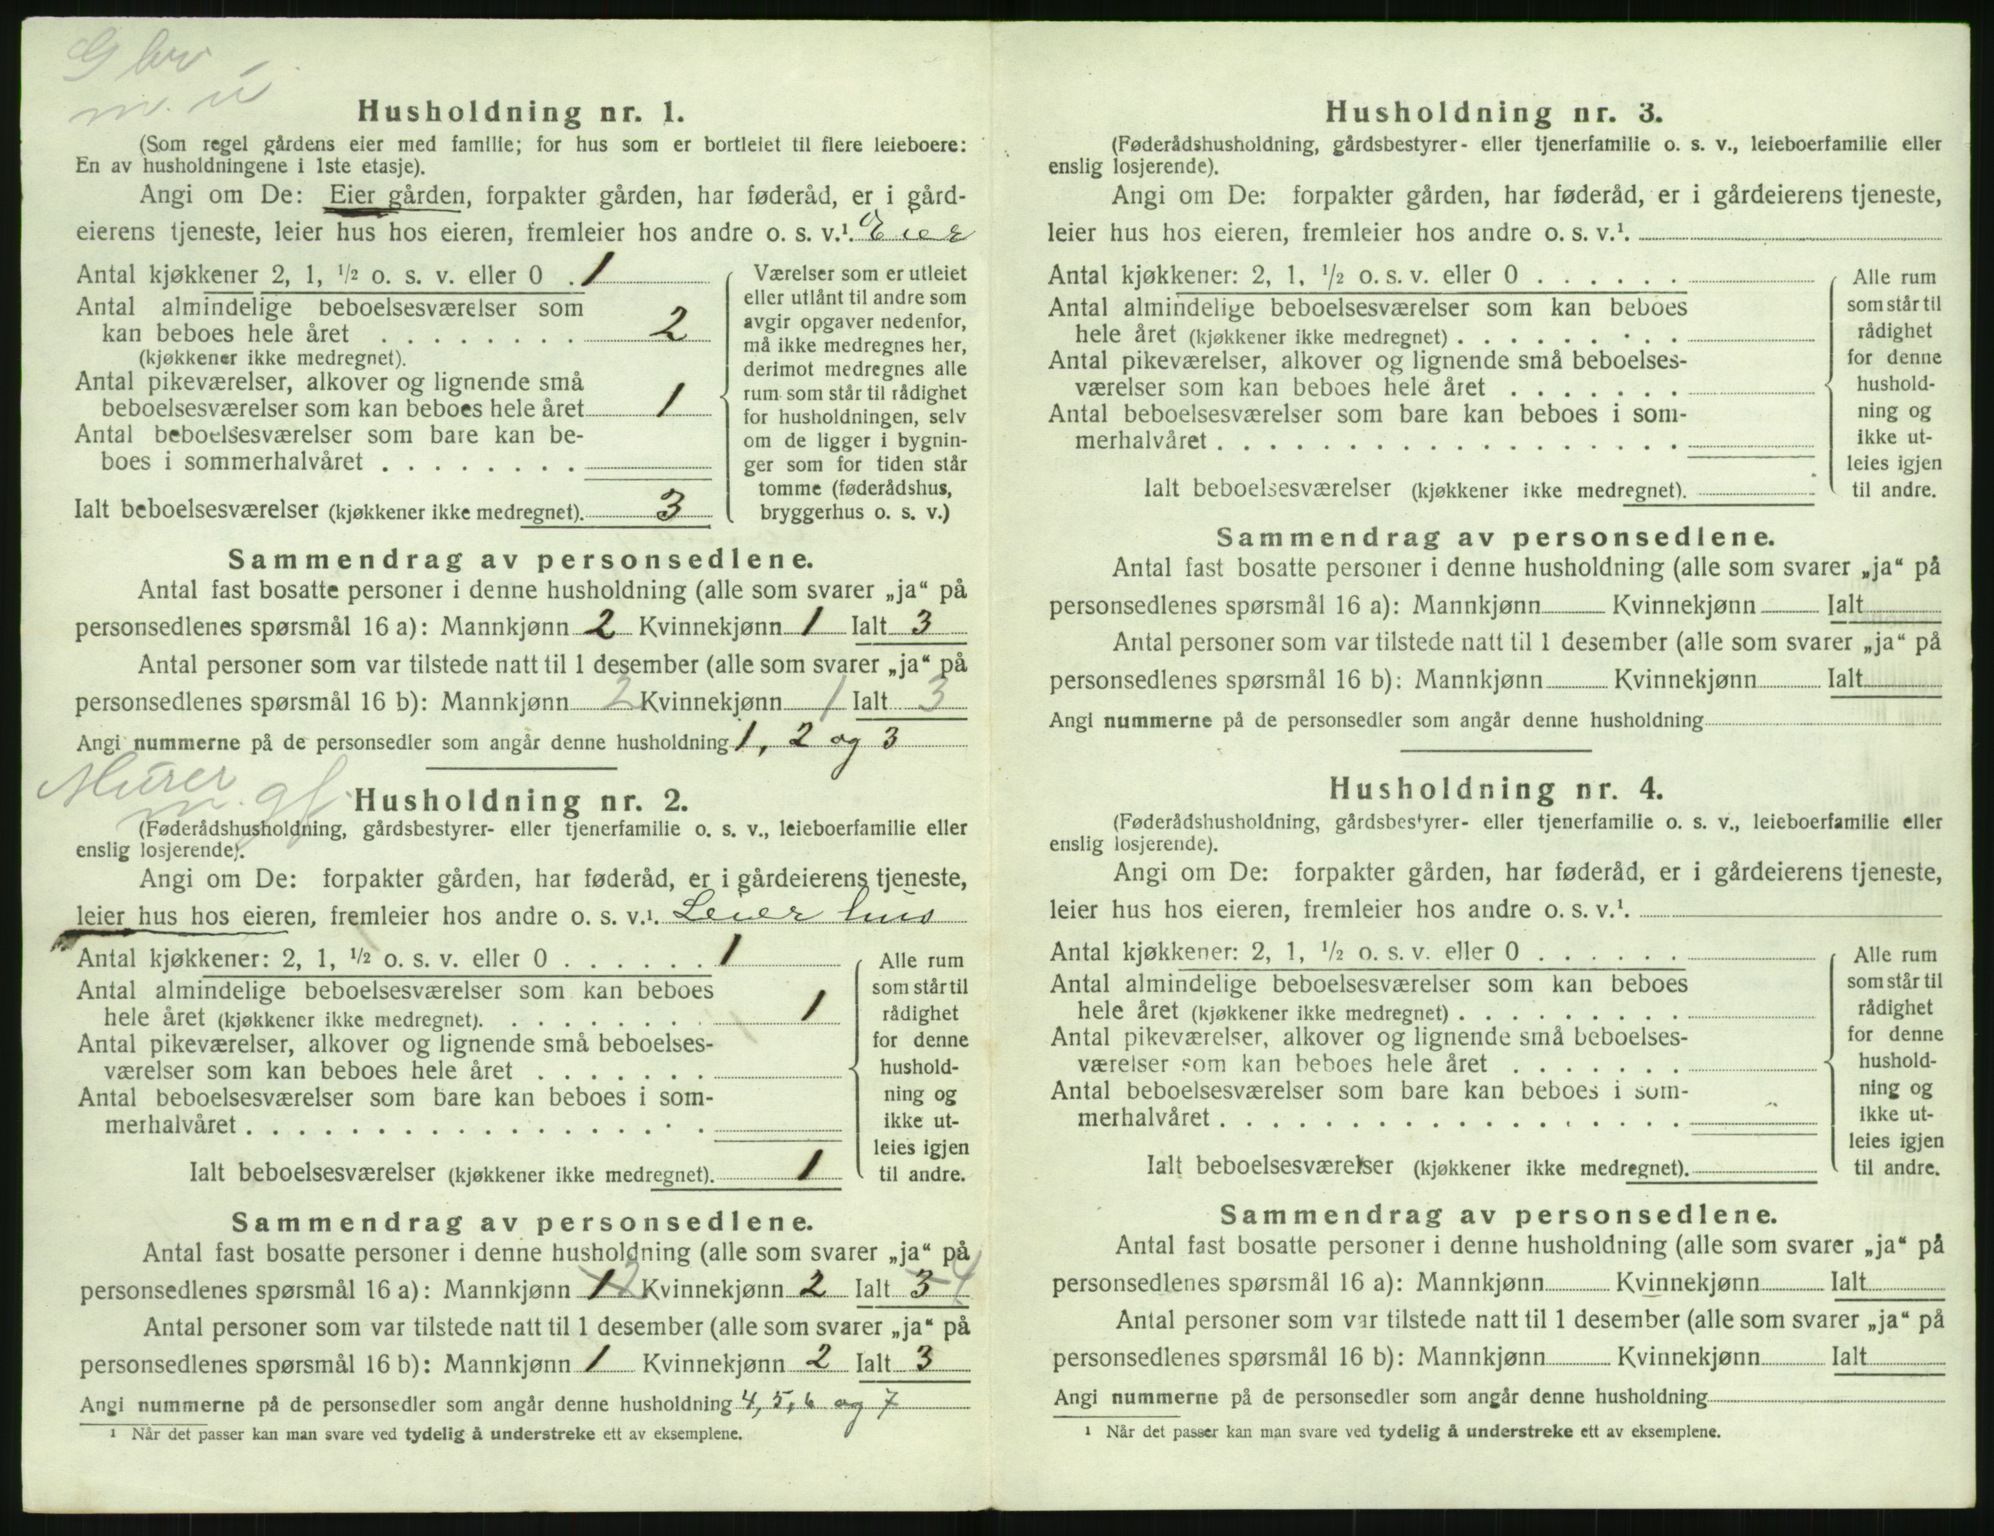 G br
m. u
Husholdning nr. 1.
(Som regel gårdens eier med familie; for hus som er bortleiet til flere leieboere:
En av husholdningene i 1ste etasje).
Angi om De: Eier gården, forpakter gården, har føderåd, er i gård-
eierens tjeneste, leier hus hos eieren, fremleier hos andre o. s. v.¹. Eier
Antal kjøkkener 2, 1, ½ o. s. v. eller 0 . 1
Antal almindelige beboelsesværelser som
kan beboes hele året . . . . . . . . 2
(kjøkkener ikke medregnet).
Antal pikeværelser, alkover og lignende små
beboelsesværelser som kan beboes hele året 1
Antal beboelsesværelser som bare kan be-
boes i sommerhalvåret . . . . . . . .
Ialt beboelsesværelser (kjøkkener ikke medregnet). 3
Værelser som er utleiet
eller utlånt til andre som
avgir opgaver nedenfor,
må ikke medregnes her,
derimot medregnes alle
rum som står til rådighet
for husholdningen, selv
om de ligger i bygnin-
ger som for tiden står
tomme (føderådshus,
bryggerhus o. s. v.)
Sammendrag av personsedlene.
Antal fast bosatte personer i denne husholdning (alle som svarer „ja“ på
personsedlenes spørsmål 16 a): Mannkjønn 2 Kvinnekjønn 1 Ialt 3
Antal personer som var tilstede natt til 1 desember (alle som svarer „ja“ på
personsedlenes spørsmål 16 b): Mannkjønn 2 Kvinnekjønn 1 Ialt 3
Angi nummerne på de personsedler som angår denne husholdning 1, 2 og 3
Murer
m. gf.
Husholdning nr. 2.
(Føderådshusholdning, gårdsbestyrer- eller tjenerfamilie o. s. v., leieboerfamilie eller
enslig losjerende).
Angi om De: forpakter gården, har føderåd, er i gårdeierens tjeneste,
leier hus hos eieren, fremleier hos andre o. s. v.¹. Leier hus
Antal kjøkkener: 2, 1, ½ o. s. v. eller 0 . . . . . . 1
Antal almindelige beboelsesværelser som kan beboes
hele året (kjøkkener ikke medregnet). . . . . . . . . 1
Antal pikeværelser, alkover og lignende små beboelses-
værelser som kan beboes hele året . . . . . . .
Antal beboelsesværelser som bare kan beboes i som-
merhalvåret . . . . . . . . . . . . . . . . . .
Ialt beboelsesværelser (kjøkkener ikke medregnet). 1
Alle rum
som står til
rådighet
for denne
hushold-
ning og
ikke ut-
leies igjen
til andre.
Sammendrag av personsedlene.
Antal fast bosatte personer i denne husholdning (alle som svarer „ja“ på
personsedlenes spørsmål 16 a): Mannkjønn 1 2 Kvinnekjønn 2 Ialt 3 4
Antal personer som var tilstede natt til 1 desember (alle som svarer „ja“ på
personsedlenes spørsmål 16 b): Mannkjønn 1 Kvinnekjønn 2 Ialt 3
Angi nummerne på de personsedler som angår denne husholdning 4, 5, 6 og 7
¹ Når det passer kan man svare ved tydelig å understreke ett av eksemplene.
Husholdning nr. 3.
(Føderådshusholdning, gårdsbestyrer- eller tjenerfamilie o. s. v., leieboerfamilie eller
enslig losjerende).
Angi om De: forpakter gården, har føderåd, er i gårdeierens tjeneste,
leier hus hos eieren, fremleier hos andre o. s. v.¹.
Antal kjøkkener: 2, 1, ½ o. s. v. eller 0 . . . . . .
Antal almindelige beboelsesværelser som kan beboes
hele året (kjøkkener ikke medregnet) . . . . . . . . .
Antal pikeværelser, alkover og lignende små beboelses-
værelser som kan beboes hele året . . . . . . .
Antal beboelsesværelser som bare kan beboes i som-
merhalvåret . . . . . . . . . . . . . . . . . .
Ialt beboelsesværelser (kjøkkener ikke medregnet).
Alle rum
som står til
rådighet
for denne
hushold-
ning og
ikke ut-
leies igjen
til andre.
Sammendrag av personsedlene.
Antal fast bosatte personer i denne husholdning (alle som svarer „ja“ på
personsedlenes spørsmål 16 a): Mannkjønn Kvinnekjønn Ialt
Antal personer som var tilstede natt til 1 desember (alle som svarer „ja“ på
personsedlenes spørsmål 16 b): Mannkjønn Kvinnekjønn Ialt
Angi nummerne på de personsedler som angår denne husholdning
Husholdning nr. 4.
(Føderådshusholdning, gårdsbestyrer- eller tjenerfamilie o. s. v., leieboerfamilie eller
enslig losjerende).
Angi om De: forpakter gården, har føderåd, er i gårdeierens tjeneste,
leier hus hos eieren, fremleier hos andre o. s. v.¹.
Antal kjøkkener: 2, 1, ½ o. s. v. eller 0 . . . . . .
Antal almindelige beboelsesværelser som kan beboes
hele året (kjøkkener ikke medregnet) . . . . . . . . .
Antal pikeværelser, alkover og lignende små beboelses-
værelser som kan beboes hele året . . . . . . .
Antal beboelsesværelser som bare kan beboes i som-
merhalvåret . . . . . . . . . . . . . . . . . .
Ialt beboelsesværelser (kjøkkener ikke medregnet).
Alle rum
som står til
rådighet
for denne
hushold-
ning og
ikke ut-
leies igjen
til andre.
Sammendrag av personsedlene.
Antal fast bosatte personer i denne husholdning (alle som svarer „ja“ på
personsedlenes spørsmål 16 a): Mannkjønn Kvinnekjønn Ialt
Antal personer som var tilstede natt til 1 desember (alle som svarer „ja“ på
personsedlenes spørsmål 16 b): Mannkjønn Kvinnekjønn Ialt
Angi nummerne på de personsedler som angår denne husholdning
¹ Når det passer kan man svare ved tydelig å understreke ett av eksemplene.